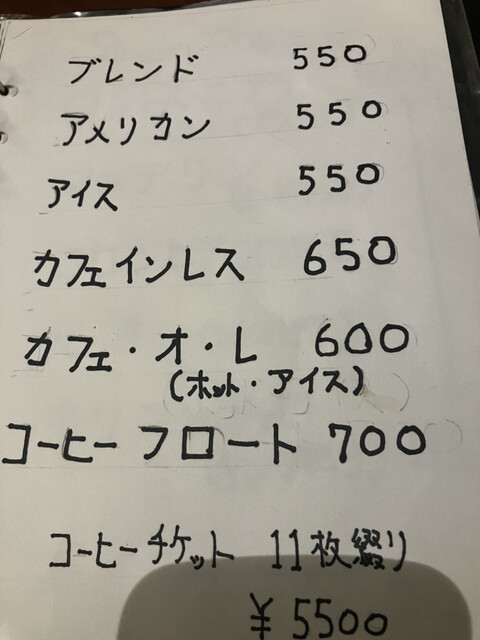 ブレンド 550
アメリカン 550
アイス 550
カフェインレス 650
カフェ・オ・レ 600
(ホット・アイス)
コーヒーフロート 700
コーヒーチケット 11枚綴り
¥5500